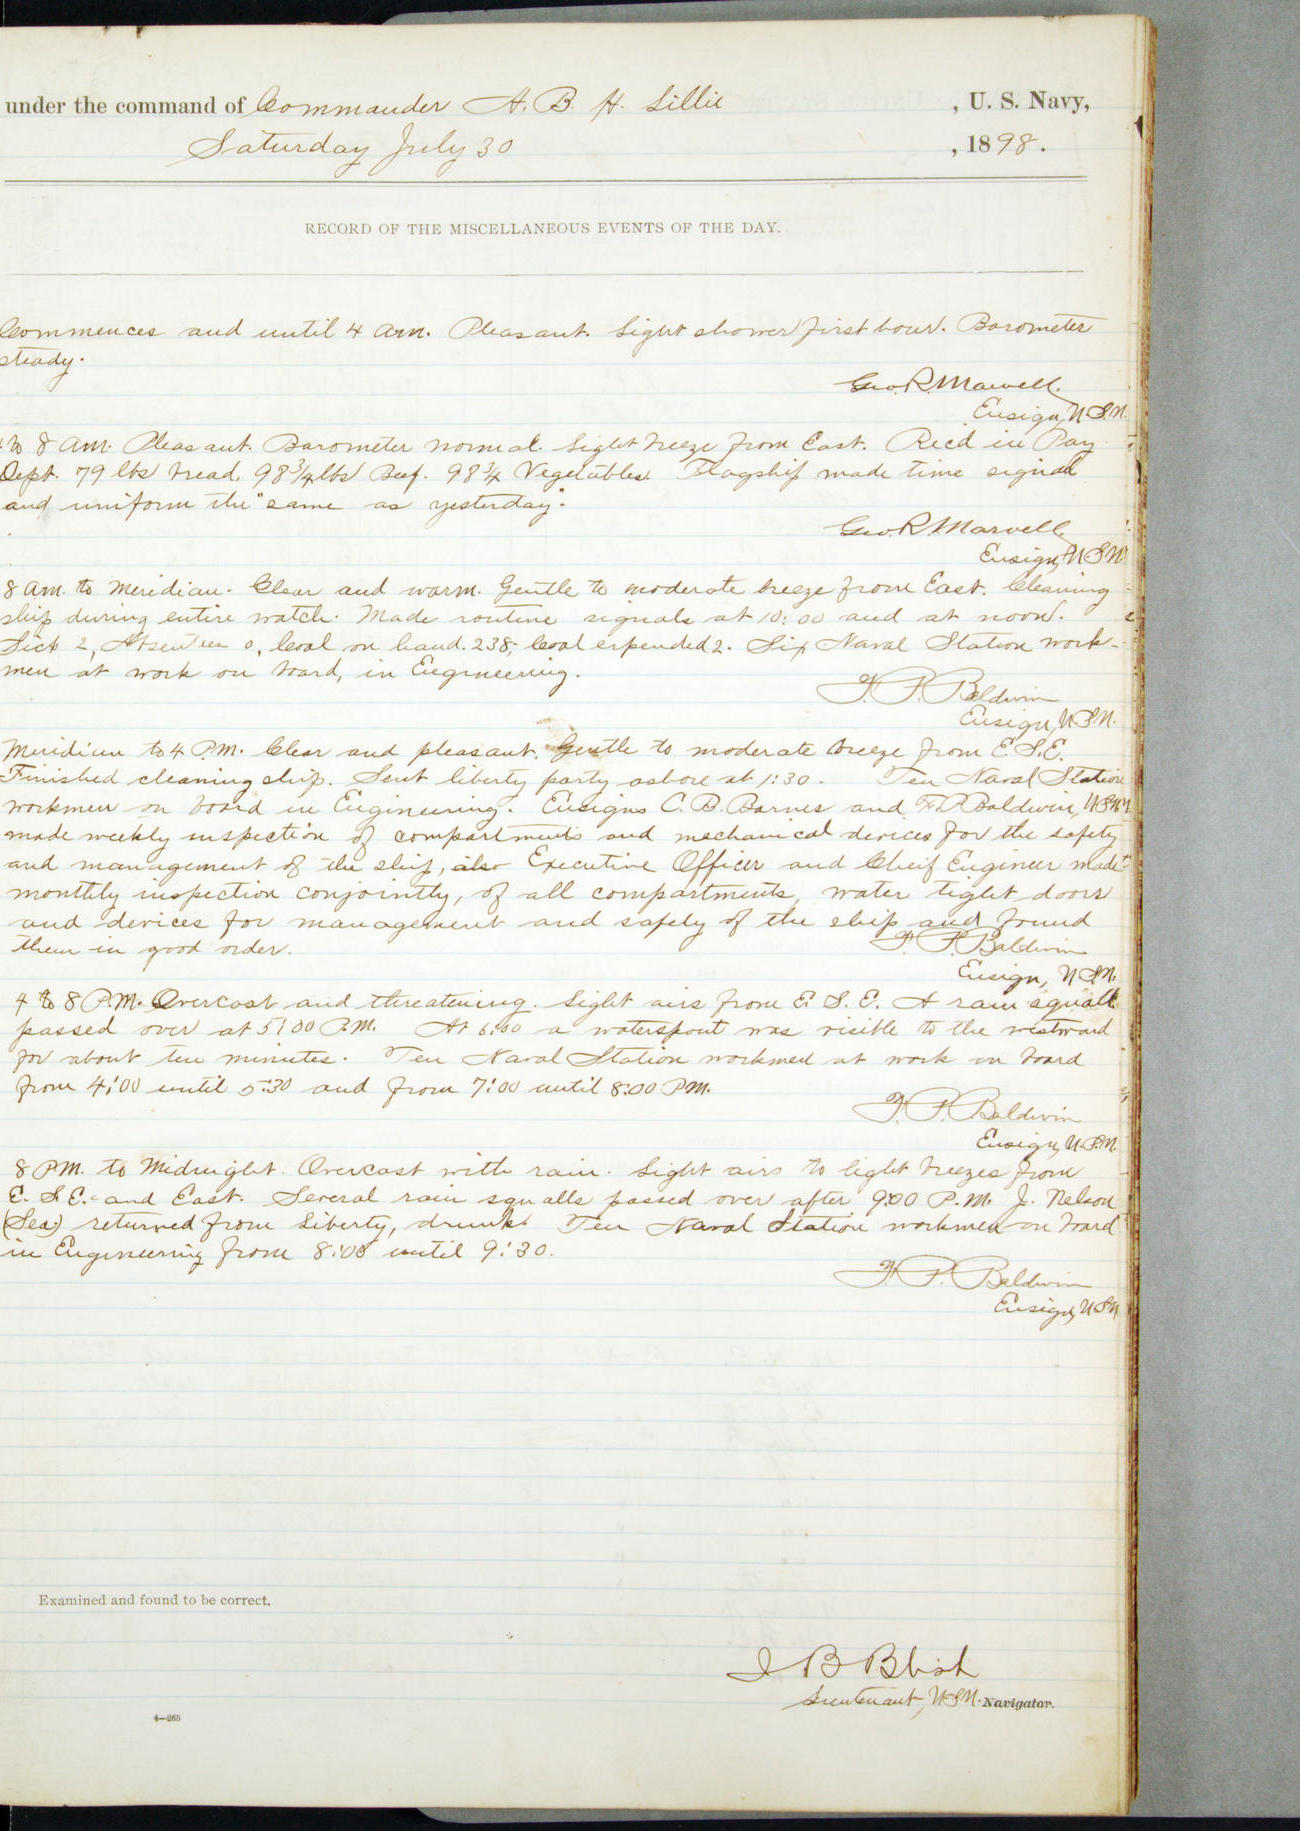 under the command of Commander A. B. H. Lillie, U. S. Navy,
Saturday July 30, 1898.
RECORD OF THE MISCELLANEOUS EVENTS OF THE DAY.
Commences and until 4 am. Pleasant. Light shower first hour. Barometer
steady.
Geo. R. Marvell
Ensign, U.S.N.
4 to 8 am. Pleasant. Barometer normal. Light breeze from East. Rec'd in Pay
Dept. 79 lbs bread, 98 3/4 lbs Beef. 98 3/4 Vegetables. Flagship made time signal
and uniform the "same as yesterday".
Geo. R. Marvell
Ensign, U.S.N.
8 am. to Meridian. Clear and warm. Gentle to moderate breeze from East. Cleaning
ship during entire watch. Made routine signals at 10:00 and at noon.
Sick 2, Absentees 0, Coal on hand. 238, Coal expended 2. Six Naval Station work-
men at work on board, in Engineering.
F. P. Baldwin
Ensign, U.S.N.
Meridian to 4 P.M. Clear and pleasant. Gentle to moderate breeze from E.S.E.
Finished cleaning ship. Sent liberty party ashore at 1:30. Ten Naval Station
workmen on board in Engineering. Ensigns C. B. Barnes and F. P. Baldwin, U.S.N.
made weekly inspection of compartments and mechanical devices for the safety
and management of the ship, also Executive Officer and Cheif Engineer made
monthly inspection conjointly, of all compartments, water tight doors
and devices for management and safety of the ship and found
them in good order.
F. P. Baldwin
Ensign, U.S.N.
4 to 8 P.M. Overcast and threatening. Light airs from E. S. E. A rain squall
passed over at 5:00 P.M. At 6:00 a waterspout was visible to the westward
for about ten minutes. Ten Naval Station workmen at work on board
from 4:00 until 5:30 and from 7:00 until 8:00 P.M.
F. P. Baldwin
Ensign, U.S.N.
8 P.M. to Midnight. Overcast with rain. Light airs to light breezes from
E. S. E. and East. Several rain squalls passed over after 9:00 P.M. J. Nelson
(Sea) returned from Liberty, drunk. Ten Naval Station workmen on board
in Engineering from 8:00 until 9:30.
F. P. Baldwin
Ensign, U.S.N.
Examined and found to be correct.
J B Blish
Lieutenant, U.S.N. Navigator.
4—265